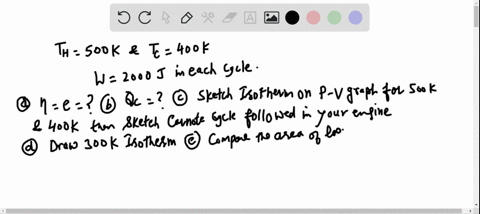 T_H = 500K & T_C = 400K
W = 2000 J in each cycle.
ⓐ η = e = ? ⓑ Q_C = ? ⓒ Sketch Isotherm on P-V graph for 500K
& 400K then sketch Carnote cycle followed in your engine
ⓓ Draw 300K Isotherm ⓔ Compare the area of loo